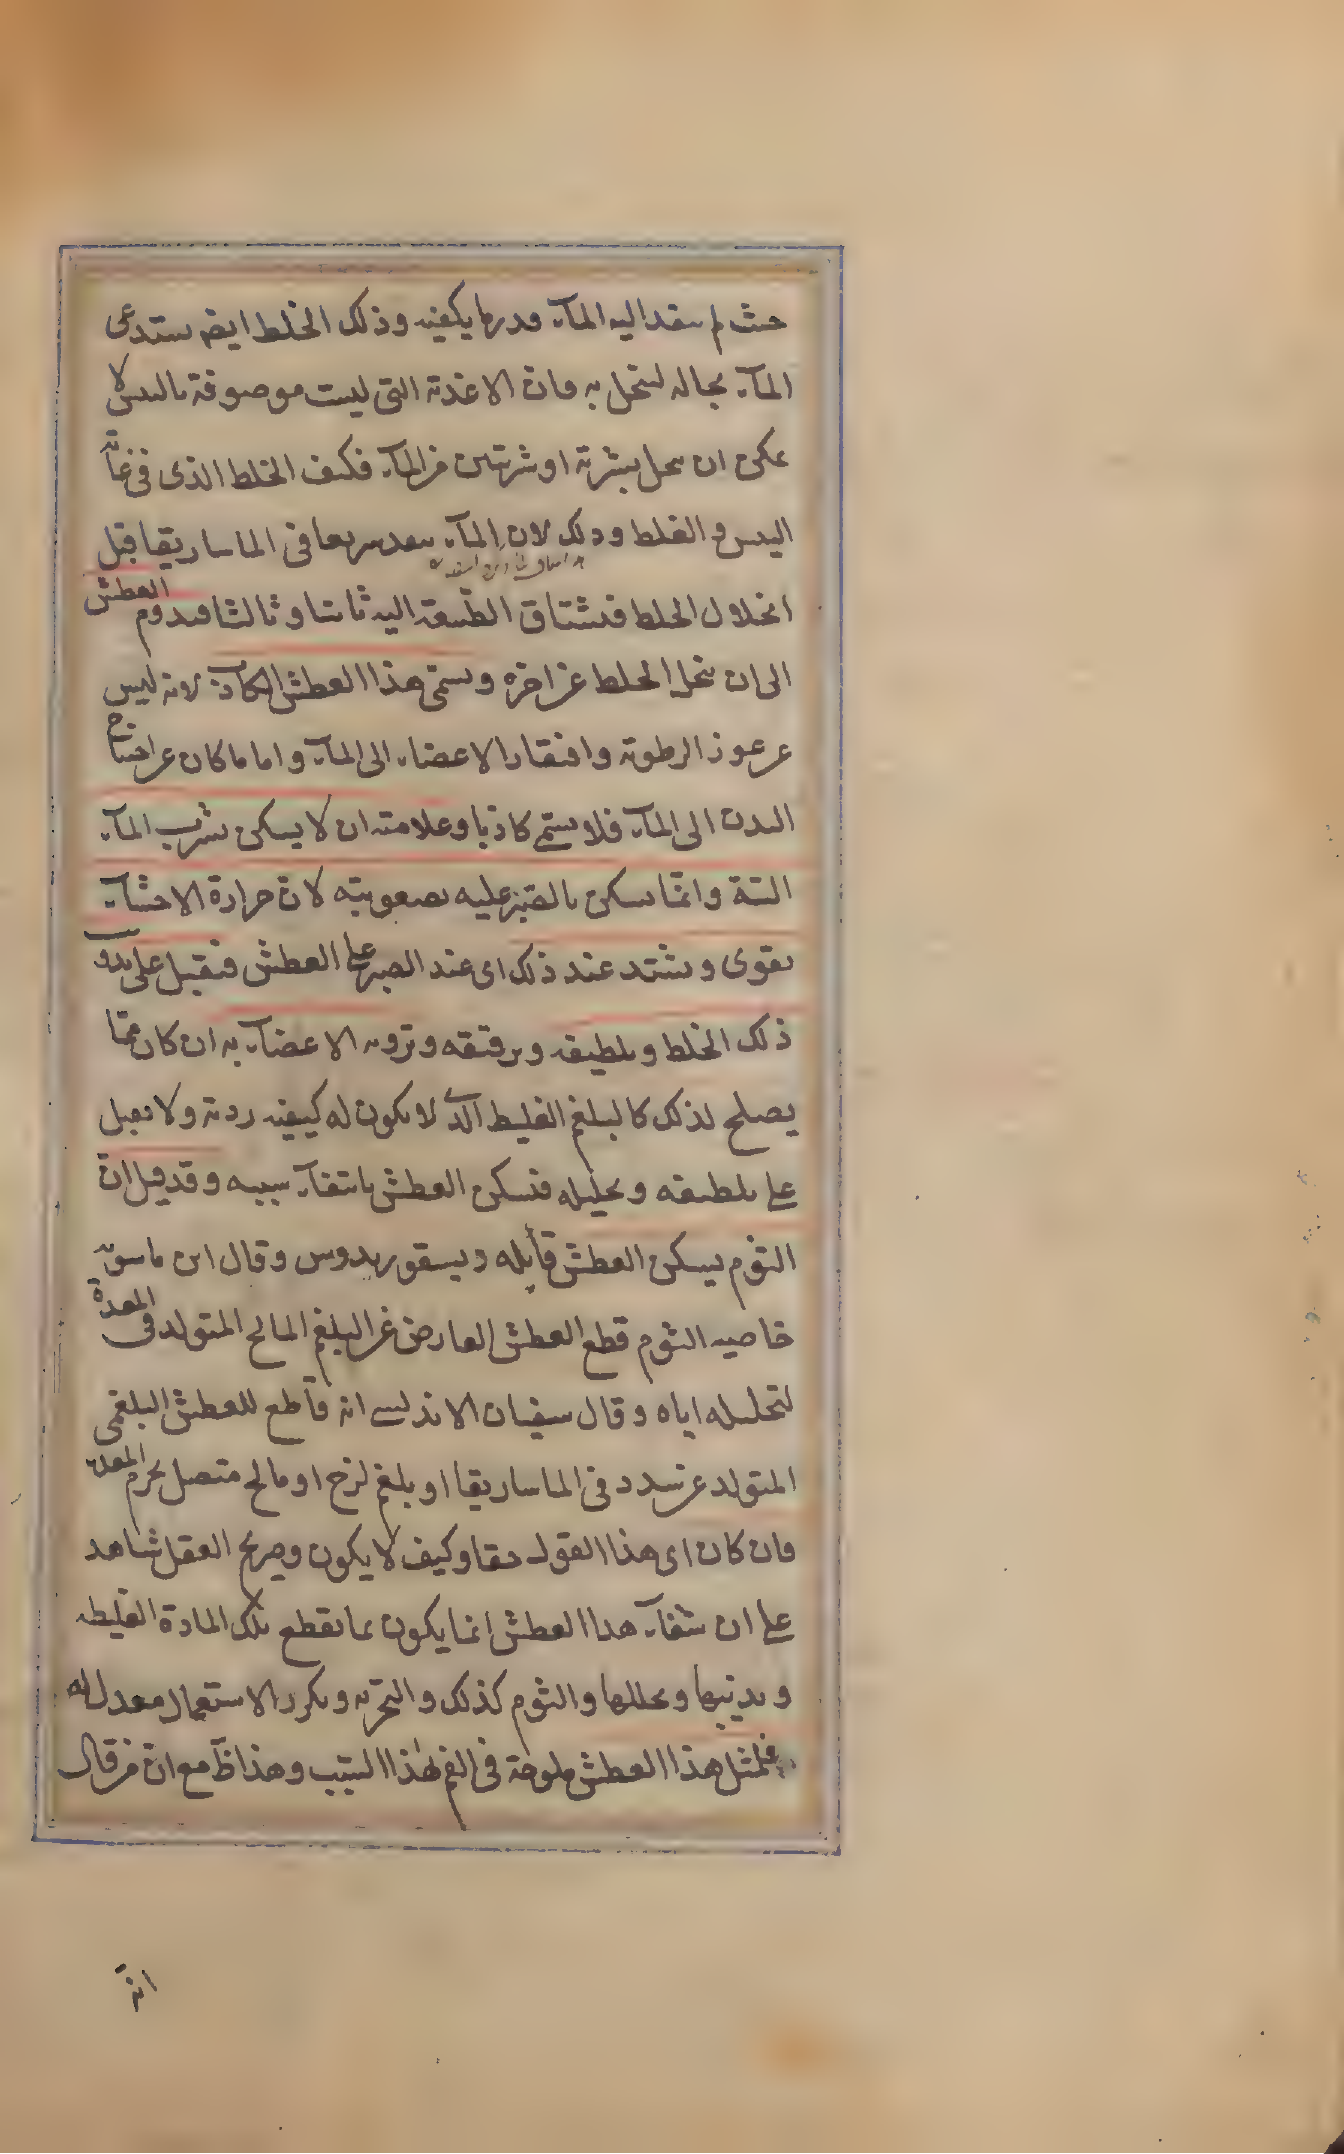 حيث لم ينفذ اليه المآء قدر ما يكفيه وذلك الخلط ايضا يستدعى
المآء بحاله لينحل به فان الاغذية التى ليست موصوفة باليبس لا
يمكن ان ينحل بشربة او شربتين من المآء فكيف الخلط الذى فى غاية
اليبس والغلظ وذلك لان المآء ينفذ سريعا فى الماساريقا قبل
انحلال الخلط فيشتاق الطبيعة اليه ثانيا وثالثا فيدوم العطش
الى ان ينحل الخلط عن اخره ويسمى هذا العطش الكاذب لانه ليس
عن عوز الرطوبة وافتقار الاعضاء الى المآء واما ما كان عن احتياج
البدن الى المآء فلا يسمى كاذبا وعلامته ان لا يسكن بشرب المآء
البتة وانما يسكن بالصبر عليه بصعوبته لان حرارة الاحشآء
يقوى ويشتد عند ذلك اى عند الصبر على العطش فيقبل على تذويب
ذلك الخلط وتلطيفه وترقيقه وتروية الاعضآء به ان كان مما
يصلح لذلك كالبلغم الغليظ الذى لا يكون له كيفية ردية ولا يقبل
على تلطيفه وتحليله فيسكن العطش بانتفآء سببه وقد قيل ان
الثوم يسكن العطش قائله ديسقوريدوس وقال ابن ماسويه
خاصية الثوم قطع العطش العارض عن البلغم المالح المتولد فى المعدة
لتحليله اياه وقال سفيان الاندلسى انه قاطع للعطش البلغمى
المتولد عن سدد فى الماساريقا او بلغم لزج او مالح متصل بجرم المعدة
فان كان اى هذا القول حقا وكيف لا يكون وصريح العقل شاهد
على ان شفآء هذا العطش انما يكون بما يقطع تلك المادة الغليظة
ويذيبها ويحللها والثوم كذلك والتجربة وتكرر الاستعمال معدل له
فلمثل هذا العطش ملوحة فى الفم لهذا السبب وهذا ظ مع ان من قال
انه